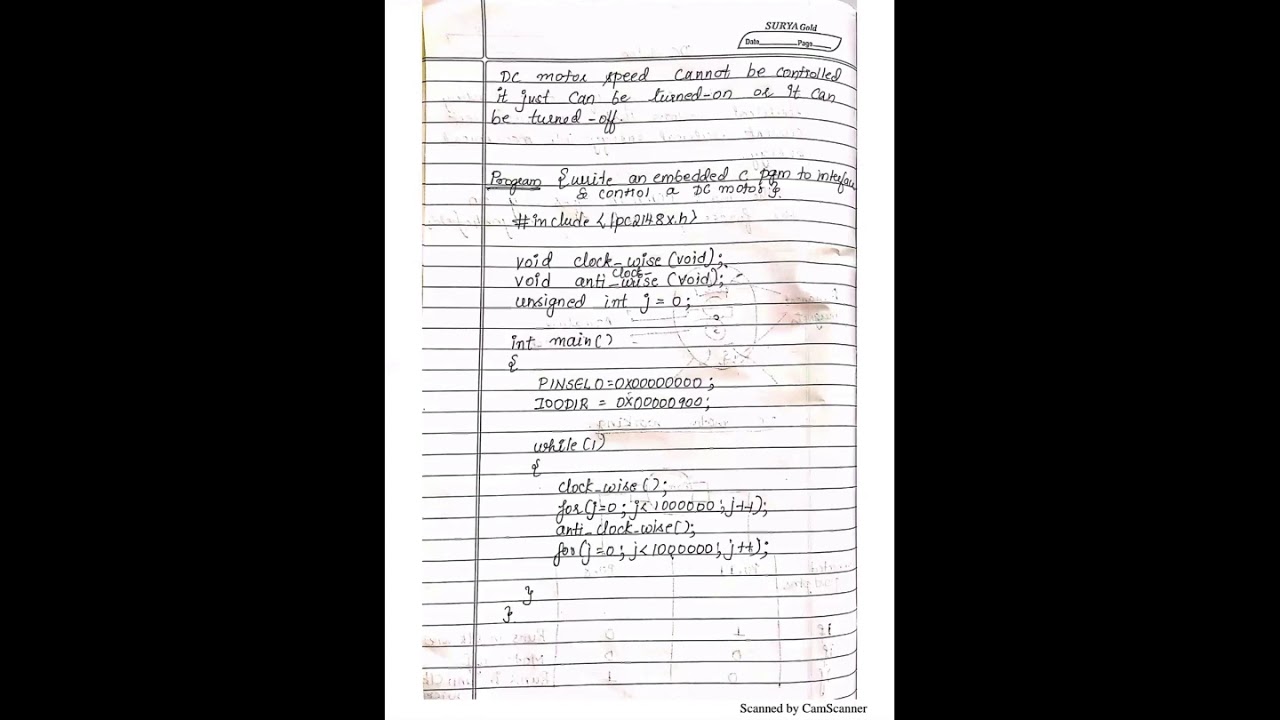 SURYA Gold
Date Page
DC motor speed cannot be controlled
it just can be turned-on or it can
be turned-off.
Program {write an embedded c pgm to interface
& control a DC motor}
#include <lpc2148x.h>
void clock_wise(void);
void anti_clock_wise(void);
unsigned int j=0;
int main()
{
PINSEL0=0X00000000;
IO0DIR = 0X00000900;
while(1)
{
clock_wise();
for(j=0; j<1000000; j++);
anti_clock_wise();
for(j=0; j<1000000; j++);
}
}
Scanned by CamScanner